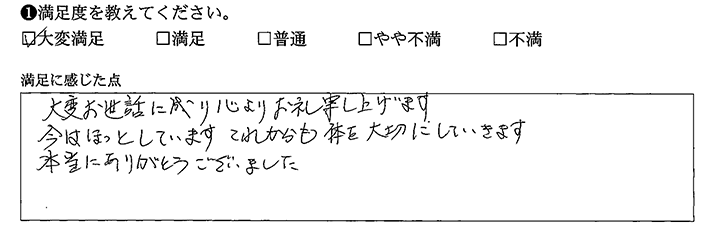 ❶満足度を教えてください。
☑大変満足 □満足 □普通 □やや不満 □不満
満足に感じた点
大変お世話に成り心よりお礼申し上げます
今はほっとしています これからも体を大切にしていきます
本当にありがとうございました